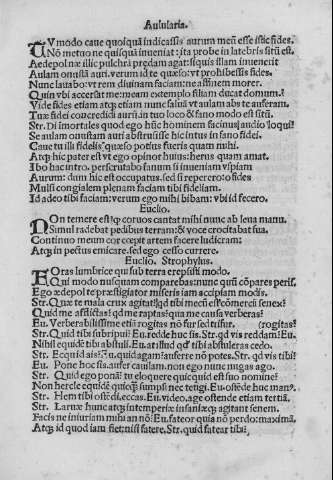 Aulularia.
TV modo caue quoiquā indicassis aurum meū esse istic fides.
Nō metuo ne quisquā inueniat: ita probe in latebris sitū est.
Aedepol næ illic pulchrā prędam agat: siquis illam inuenerit
Aulam onustā auri. verum id te quæso: vt prohibessis fides.
Nunc lauabo: vt rem diuinam faciam: ne affinem morer.
Quin vbi accersat me: meam extemplo filiam ducat domum.
Vide fides etiam atq; etiam nunc saluā vt aulam abs te auferam.
Tuæ fidei concredidi aurū. in tuo loco & fano modo est sitū.
Str. Di imortales quod ego hūc hōminem facinus audio loqui?
Se aulam onustam auri abstrusisse hic intus in fano fidei.
Caue tu illi fidelis quæso potius fueris quam mihi.
Atq; hic pater est vt ego opinor huius: herus quam amat.
Ibo hac intro. perscrutabo fanum si inueniam vspiam
Aurum: dum hic est occupatus. sed si repererο: o fides
Mulsi congialem plenam faciam tibi fideliam.
Id adeo tibi faciam: verum ego mihi bibam: vbi id fecero.
Euclio.
NOn temere est q; coruos cantat mihi nunc ab leua manu.
Simul radebat pedibus terram: & voce crocitabat sua.
Continuo meum cor cœpit artem facere ludicram:
Atq; in pectus emicare. sed ego cesso currere.
Euclio. Strophylus.
FOras lumbrice qui sub terra erepsisti modo.
Qui modo nusquam comparebas: nunc quū cōpares peris.
Ego ædepol te præstigiator miseris iam accipiam modis.
Str. Quæ te mala crux agitat? qd tibi mecū est? scōmerciū senex?
Quid me afflictas? qd me raptas? qua me causa verberas?
Eu. Verberabilissime etiā rogitas nō fur sed trifur. (rogitas?
Str. Quid tibi subripui? Eu. redde huc sis. Str. qd vis reddam? Eu.
Nihil equidē tibi abstuli. Eu. at illud qd tibi abstuleras cedo.
Str. Ecquid ais? Eu. quid agam? auferre nō potes. Str. qd vis tibi?
Eu. Pone hoc sis. aufer cauillam. non ego nunc nugas ago.
Str. Quid ego ponā? tu eloquere quicquid est suo nomine?
Non hercle equidē quicq̄ sumpsi nec tetigi. Eu. ostēde huc man9.
Str. Hem tibi ostēdi. eccas. Eu. video. age ostende etiam tertiā.
Str. Laruæ hunc atq; intemperiæ insaniæq; agitant senem.
Facis ne iniuriam mihi an nō? Eu. fateor quia nō pendes: maximā.
Atq; id quod iam fiet: nisi fatere. Str. quid fatear tibi?